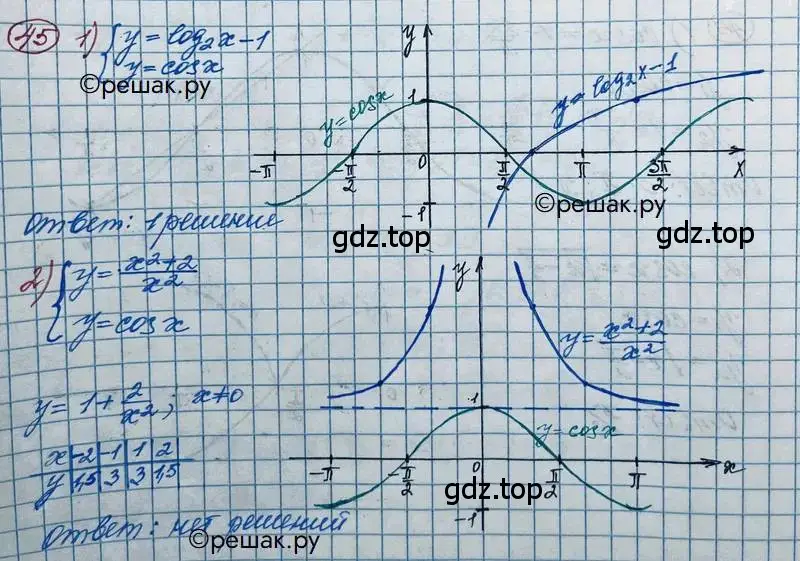 45 1) { y = log₂x - 1
y = cosx
©решак.ру
y
1
y=cosx
y=log₂x-1
-π -π/2 0 π/2 π 3π/2 x
-1
©решак.ру
ответ: 1 решение
gdz.top gdz.top
2) { y = x²+2/x²
y = cosx
y
y = x²+2/x²
y = 1 + 2/x²; x≠0
©решак.ру
1
y=cosx
x -2 -1 1 2
y 1,5 3 3 1,5
-π -π/2 0 π/2 π x
gdz.top gdz.top
-1
ответ: нет решений
©решак.ру